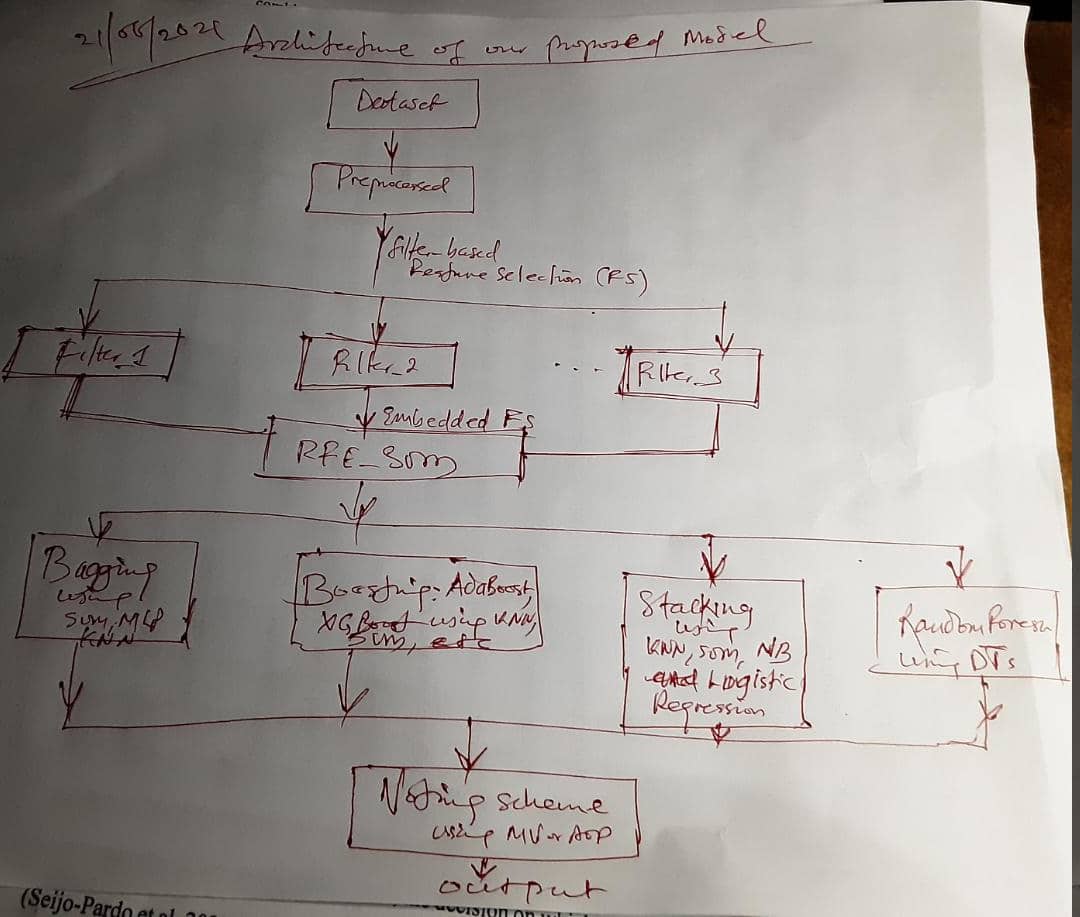 21/06/2021 Architecture of our proposed Model
Dataset
Preprocessed
filter-based
Feature Selection (FS)
Filter_1
Filter_2
...
Filter_3
Embedded FS
RFE_SVM
Bagging
using
SVM, MLP
KNN
Boosting: AdaBoost,
XGBoost using KNN,
SVM, etc
Stacking
using
KNN, SVM, NB
and Logistic
Regression
Random Forest
using DTs
Voting scheme
using MV or AOP
output
(Seijo-Pardo et al